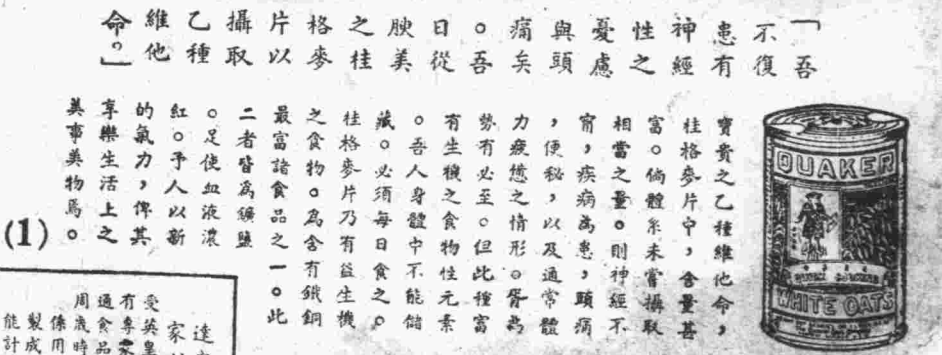 「吾
不復
患有
神經
性之
憂慮
與頭
痛矣
。吾
日從
腴美
之桂
格麥
片以
攝取
乙種
維他
命。」
寶貴之乙種維他命，
桂格麥片中，含量甚
富。倘體系未嘗攝取
相當之量。則神經不
甯，疾病為患，頭痛
，便秘，以及通常體
力疲憊之情形。胥為
勢有必至。但此種富
有生機之食物性元素
。吾人身體中不能儲
藏。必須每日食之。
桂格麥片乃有益生機
之食物。為含有鐵銅
最富諸食品之一。此
二者皆為鑛鹽
。足使血液濃
紅。予人以新
的氣力，俾其
享樂生活上之
美事美物焉。
QUAKER
WHITE OATS
(1)
受英皇
有專家
通食品
周歲時
係用
製成
能計